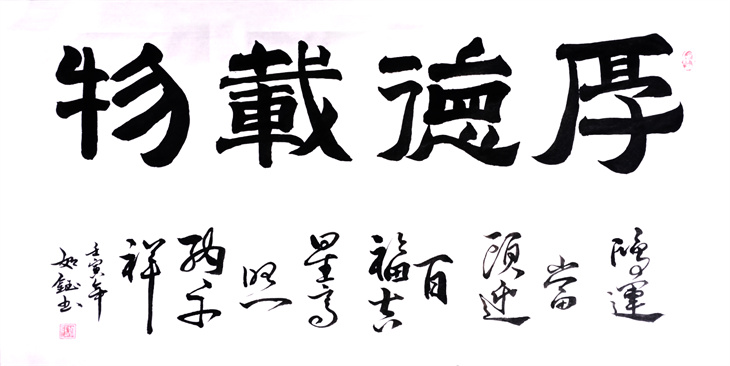 厚德載物
鴻運
當
頭迎
百
福吉
星高
照
納千
祥
壬寅年
如鈺书